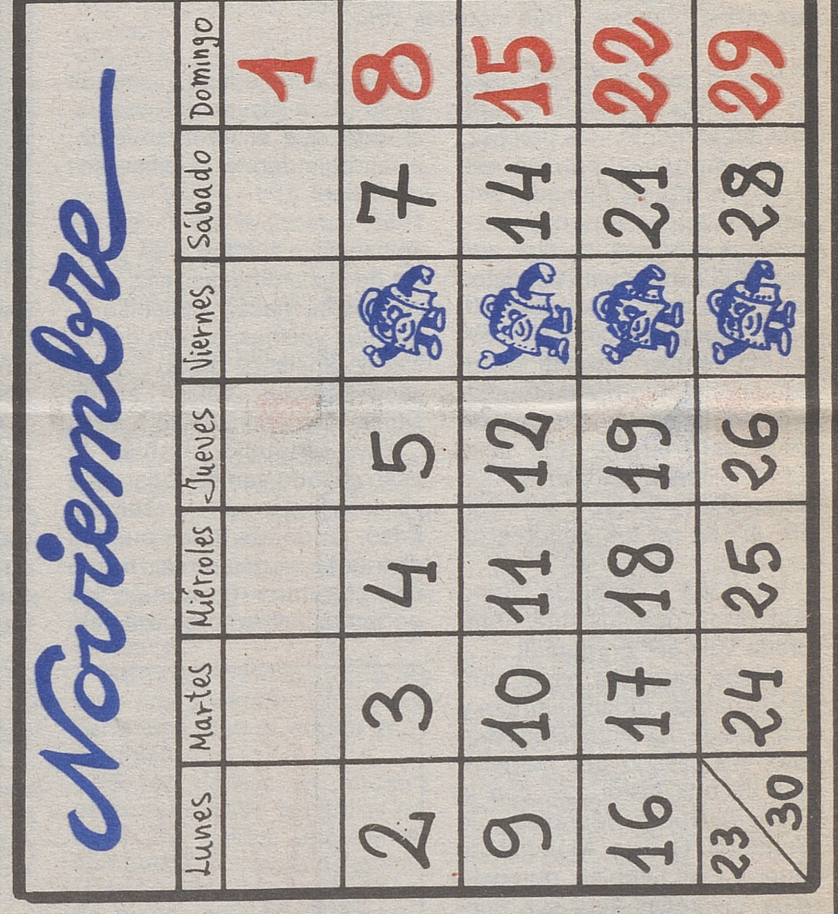 Noviembre
Lunes Martes Miércoles Jueves Viernes Sábado Domingo
1
2 3 4 5 7 8
9 10 11 12 14 15
16 17 18 19 21 22
23 30 24 25 26 28 29